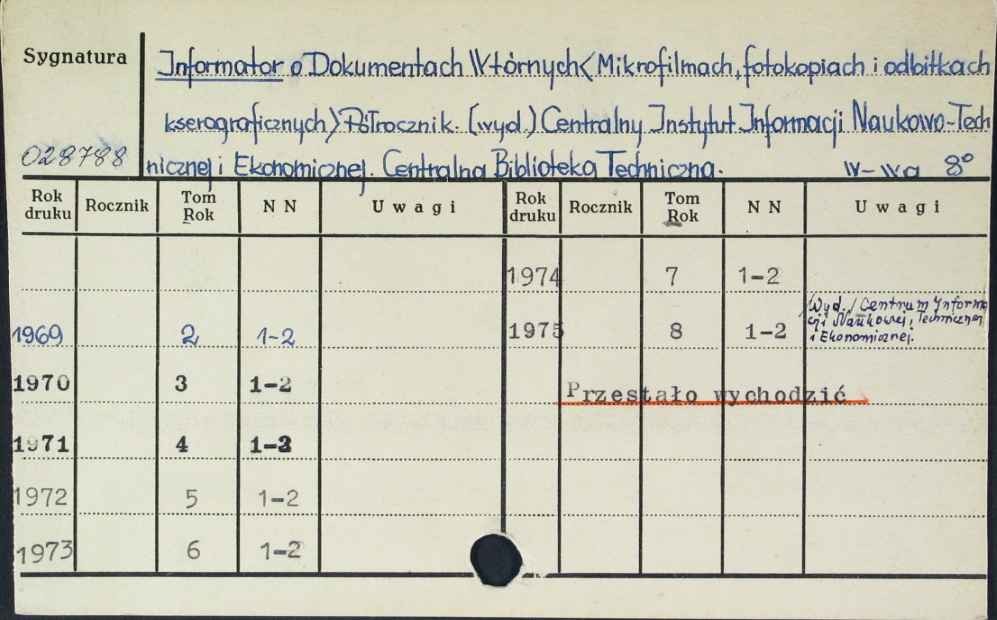 Sygnatura
Informator o Dokumentach Wtórnych<Mikrofilmach, fotokopiach i odbitkach
kserograficznych> Półrocznik. (wyd.) Centralny Instytut Informacji Naukowo-Tech
028788 nicznej i Ekonomicznej. Centralna Biblioteka Techniczna. W-wa 8°
Rok druku Rocznik Tom Rok N N Uwagi Rok druku Rocznik Tom Rok N N Uwagi
1974 7 1-2
1969 2 1-2 1975 8 1-2 /Wyd./ Centrum Informa
cji Naukowej, Technicznej
i Ekonomicznej.
1970 3 1-2 Przestało wychodzić
1971 4 1-2
1972 5 1-2
1973 6 1-2